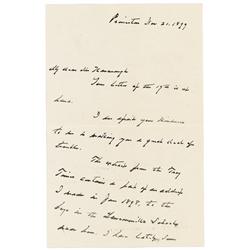 Princeton Dec 21. 1899
My dear Mr Kavanaugh
Your letter of the 19th is at
hand.
I am afraid your kindness
to me is making you a great deal of
trouble.
The extract from the Troy
Times contains a part of an address
I made in Jan 1898. to the
boys in the Lawrenceville School
near here. I have lately, I am